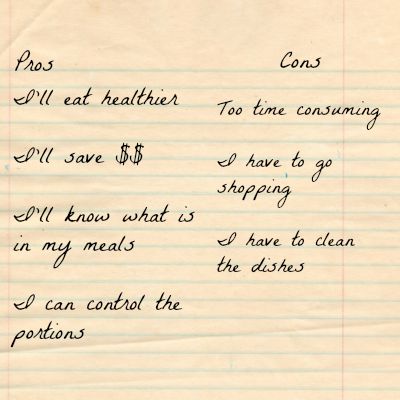 Pros
I'll eat healthier
I'll save $$
I'll know what is
in my meals
I can control the
portions
Cons
Too time consuming
I have to go
shopping
I have to clean
the dishes